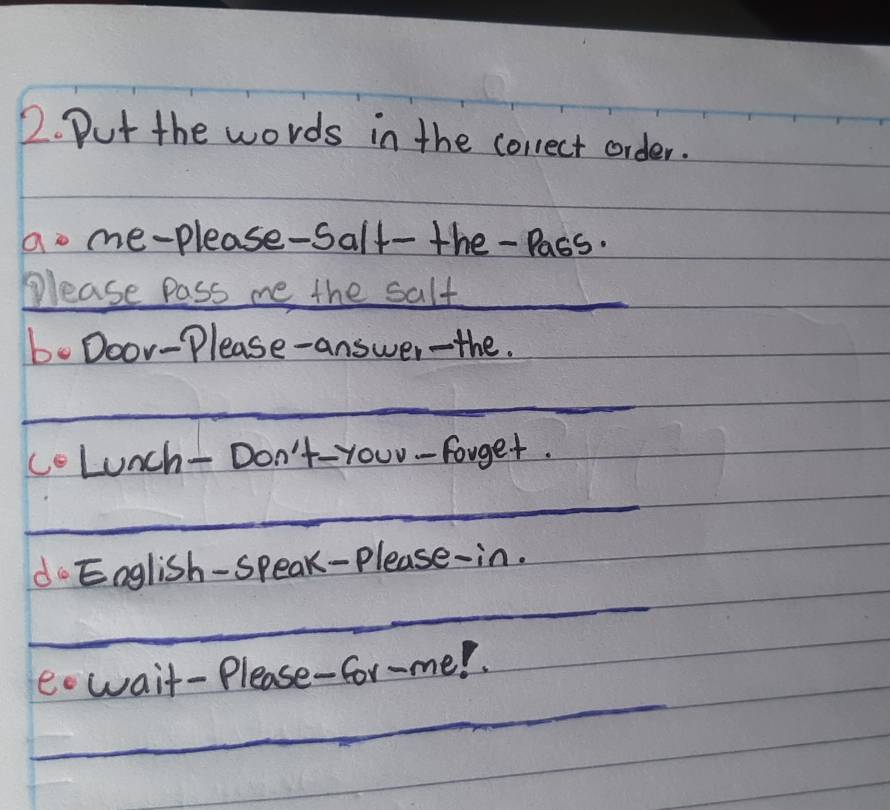 2. Put the words in the correct order.
a. me-please-Salt-the-Pass.
Please pass me the salt
b. Door-Please-answer-the.
c. Lunch-Don't-your-forget.
d. English-speak-please-in.
e. wait-Please-for-me!.